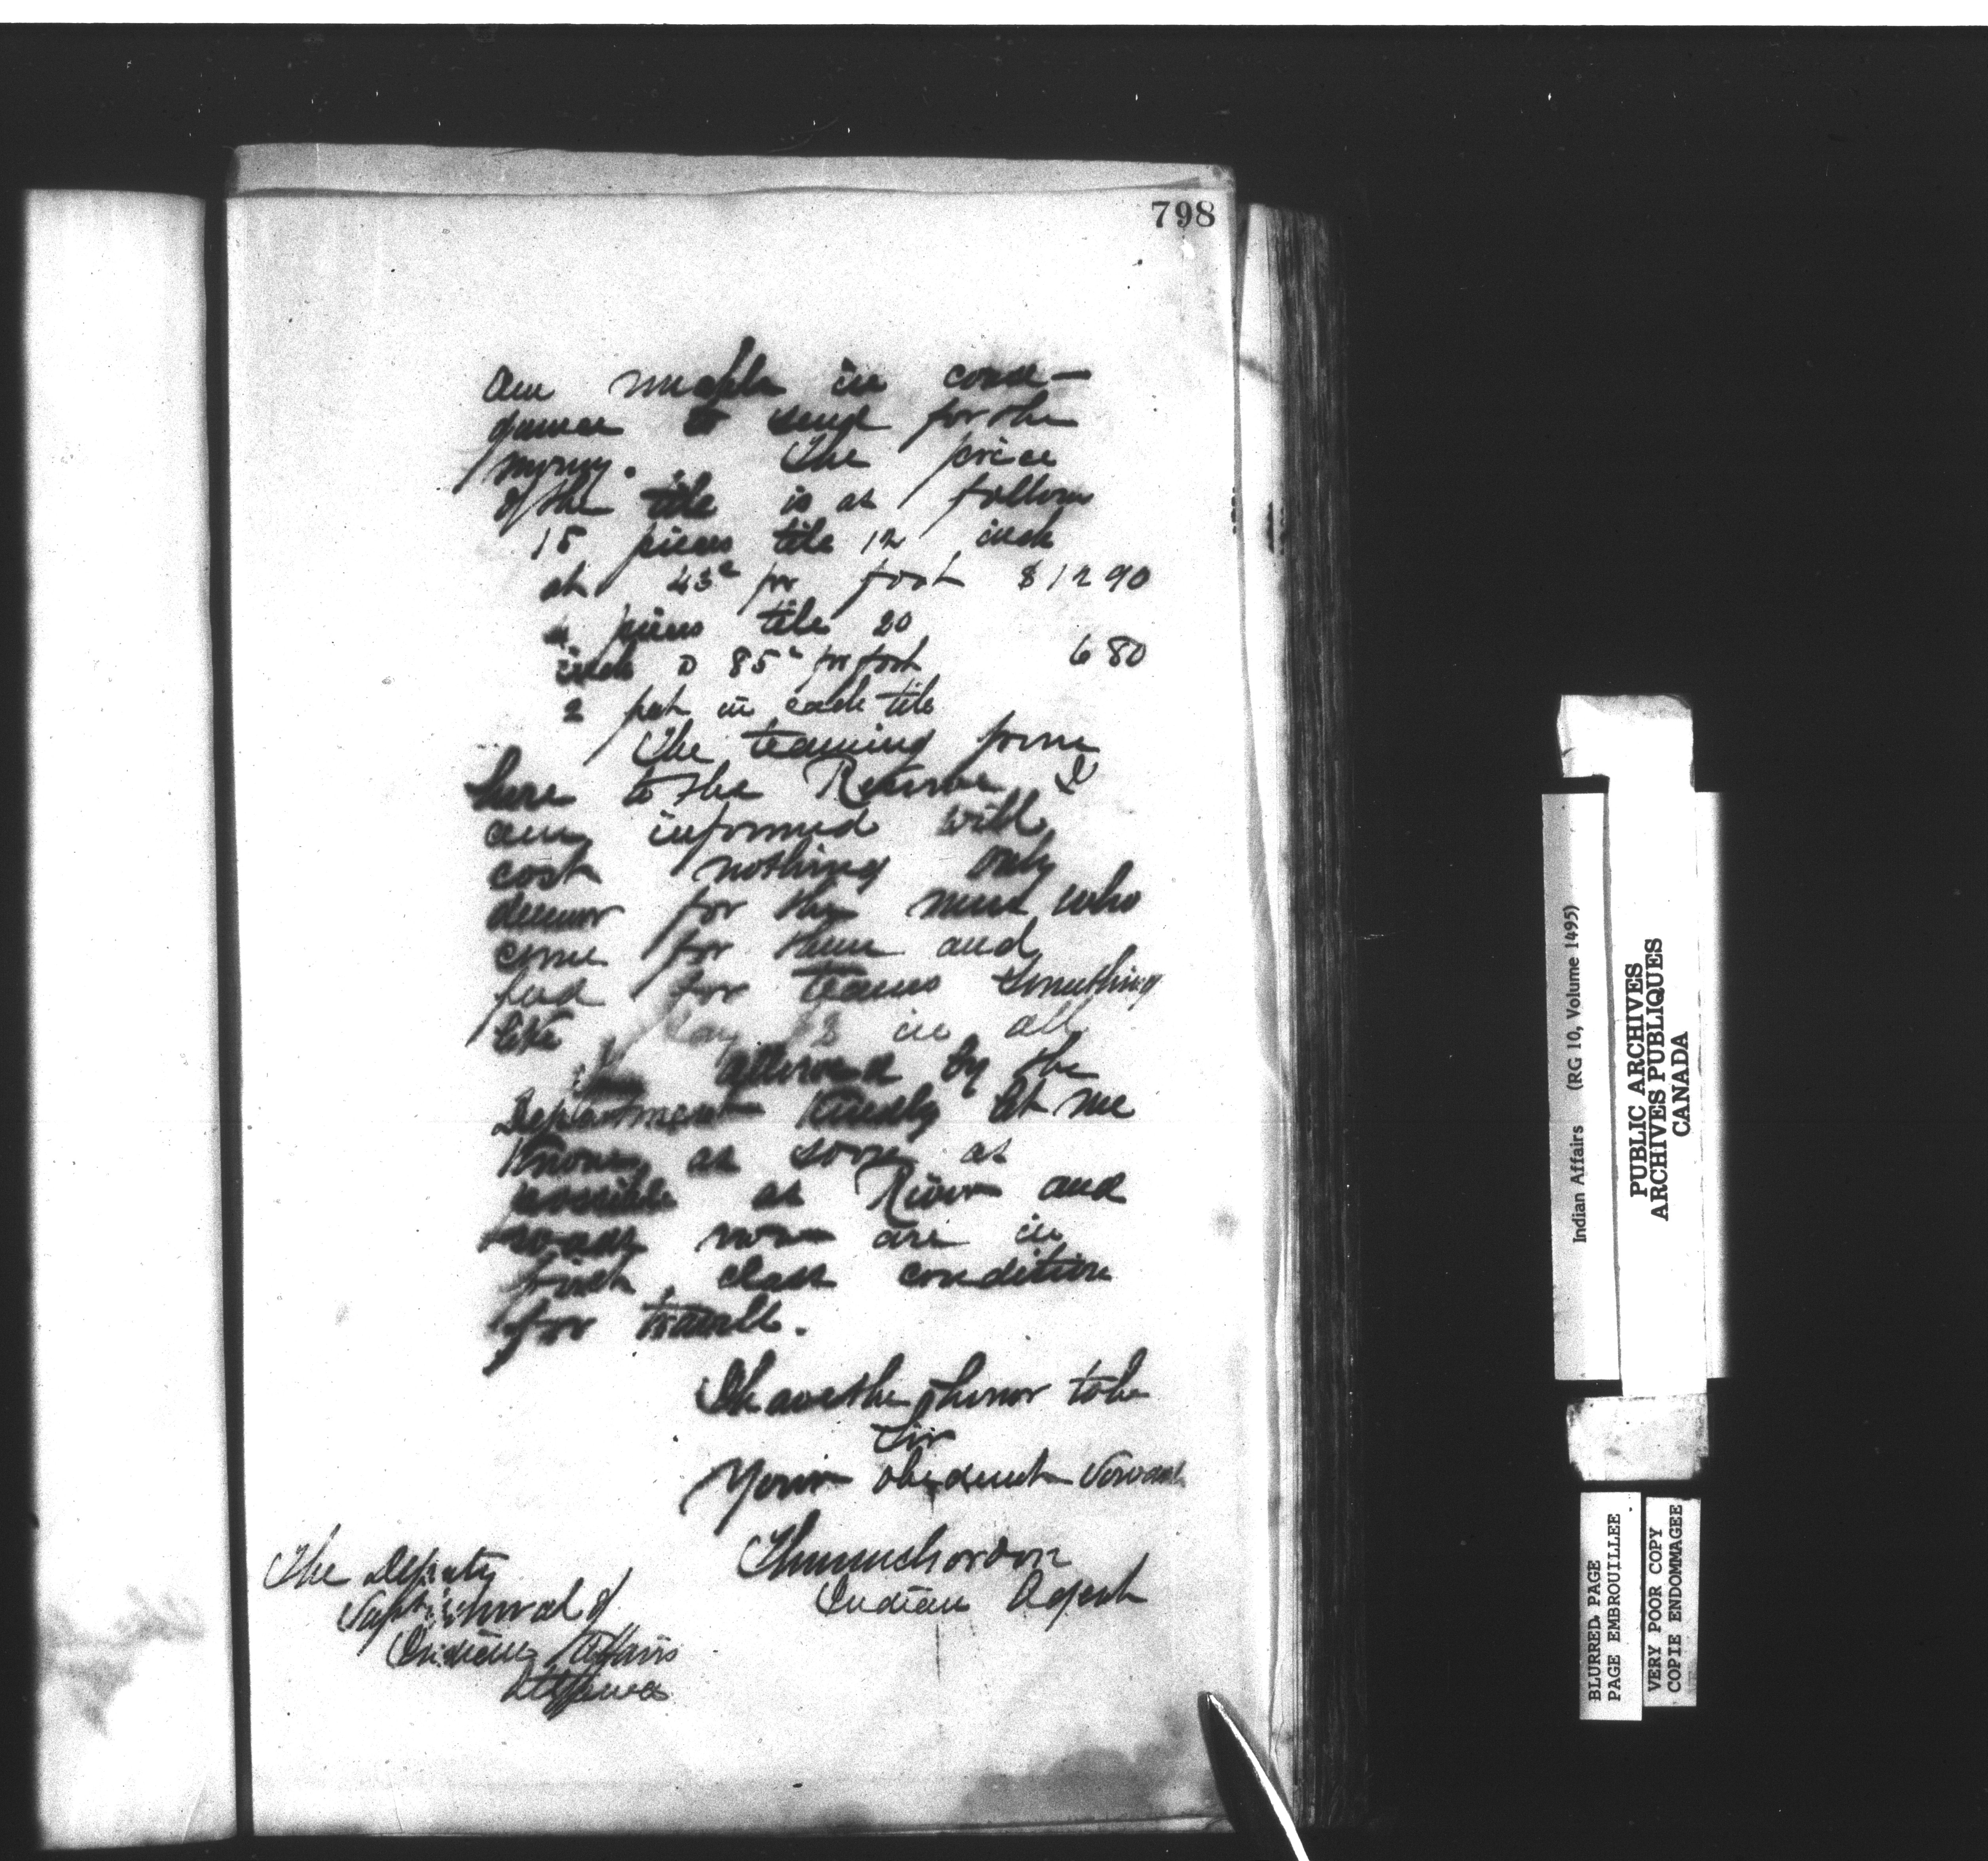 798
am unable in conse-
quence to send for the
money. The price
of the tile is as follows
15 pieces tile 12 inch
at 43c per foot $12 90
4 pieces tile 20
inch D 85c per foot 6 80
2 feet in each tile
The teaming from
here to the Reserve I
am informed will
cost nothing only
dinner for the men who
come for them and
feed for teams something
like say $3 in all
allowed by the
Department Kindly let me
Know as soon as
possible as River and
roads now are in
first class condition
for travell.
I have the honor to be
Sir
Your obedient Servant
Indian Agent
The Deputy
Supt. General of
Indian Affairs
Ottawa
Indian Affairs (RG 10, Volume 1495)
PUBLIC ARCHIVES
ARCHIVES PUBLIQUES
CANADA
BLURRED PAGE
PAGE EMBROUILLEE
VERY POOR COPY
COPIE ENDOMMAGEE